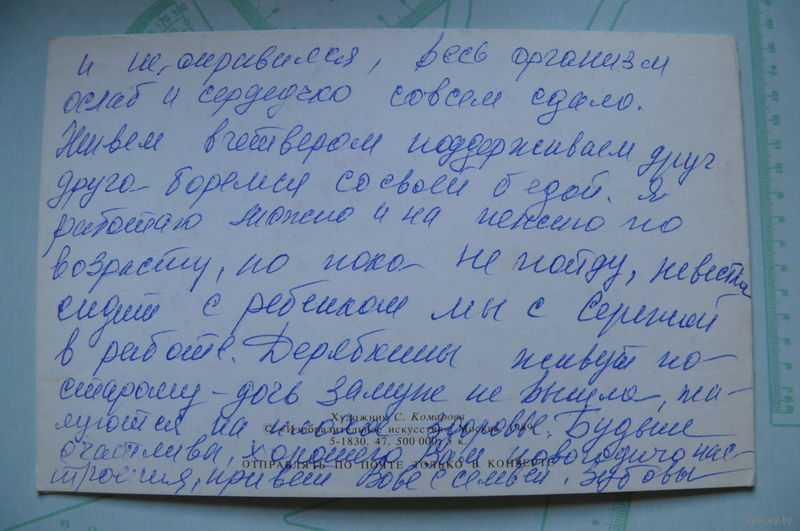 и не оправился, весь организм
ослаб и сердечко совсем сдало.
Живем вчетвером поддерживаем друг
друга боремся со своей бедой. Я
работаю можно и на пенсию по
возрасту, но пока не пойду, невестка
сидит с ребенком мы с Сережей
в работе. Дерябкины живут по-
старому - дочь замуж не вышла, жа-
Художник С. Комарова
луются на здоровье. Будьте
© «Изобразительное искусство». Москва. 1989
5-1830. 47. 500 000. 5 к.
счастливы, хорошего Вам новогоднего нас-
ОТПРАВЛЯТЬ ПО ПОЧТЕ ТОЛЬКО В КОНВЕРТЕ
троения, привет Вове с семьей. Зубовы
www.ay.by